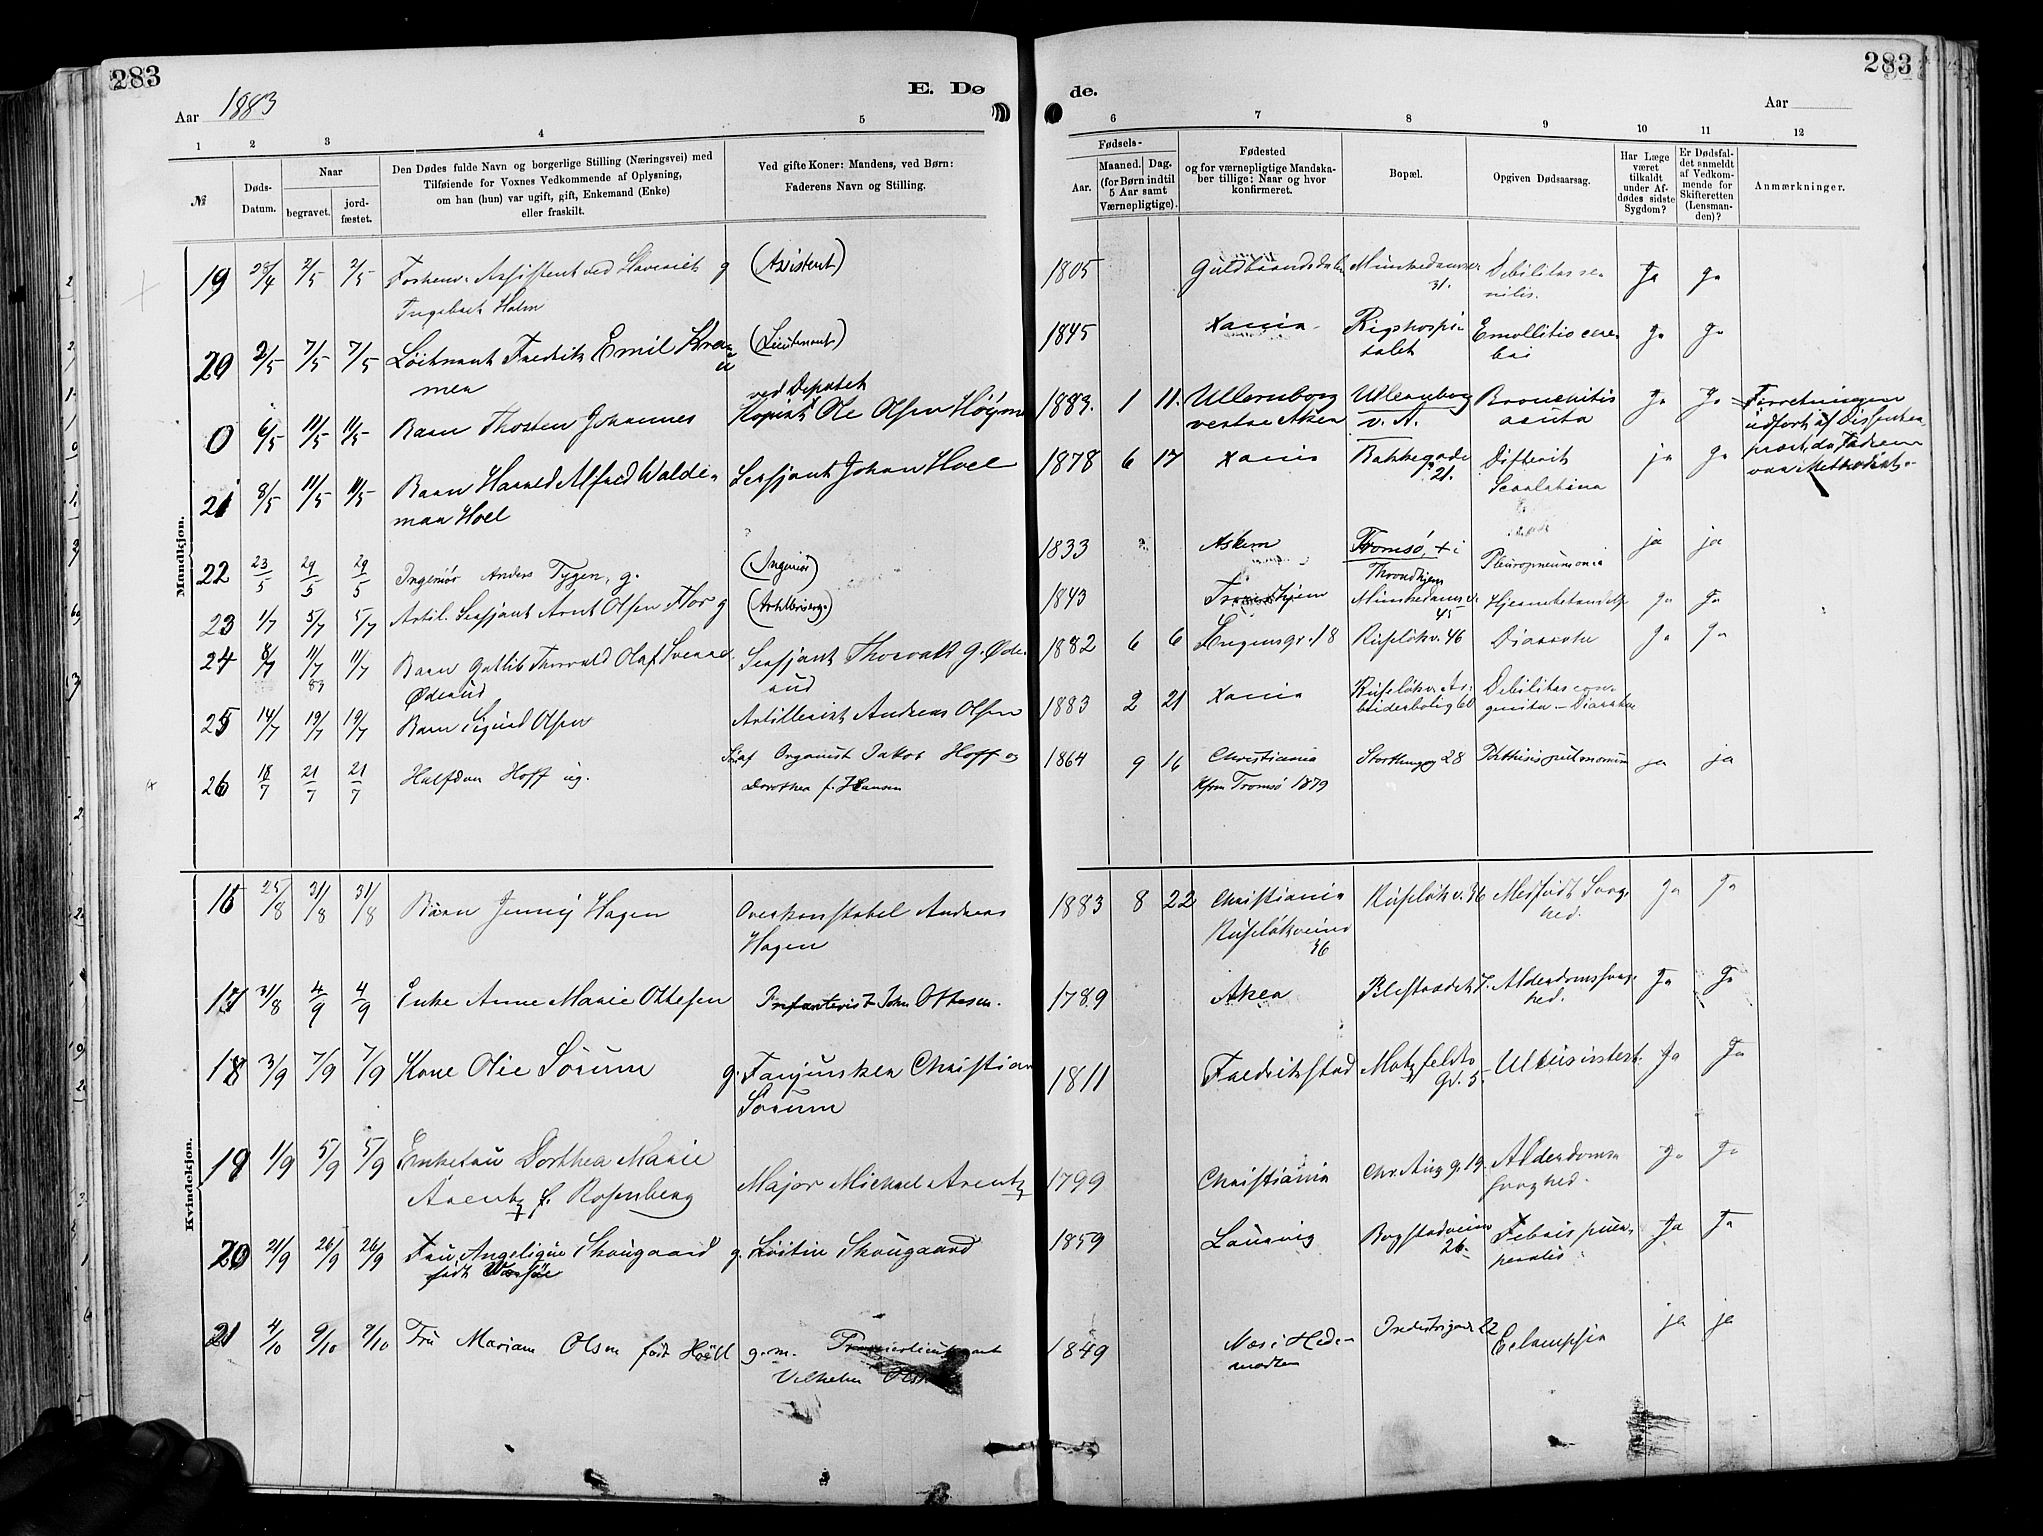 283
283
Aar 1883
E. Dø
de.
Aar
1 2 3 4 5
6 7 8 9 10 11 12
№
Døds-
Datum.
Naar
begravet.
jord-
fæstet.
Den Dødes fulde Navn og borgerlige Stilling (Næringsvei) med
Tilføiende for Voxnes Vedkommende af Oplysning,
om han (hun) var ugift, gift, Enkemand (Enke)
eller fraskilt.
Ved gifte Koner: Mandens, ved Børn:
Faderens Navn og Stilling.
Fødsels-
Aar.
Maaned. Dag.
(for Børn indtil
5 Aar samt
Værnepligtige).
Fødested
og for værnepligtige Mandska-
ber tillige: Naar og hvor
konfirmeret.
Bopæl.
Opgiven Dødsaarsag.
Har Læge
været
tilkaldt
under Af-
dødes sidste
Sygdom?
Er Dødsfal-
det anmeldt
af Vedkom-
mende for
Skifteretten
(Lensman-
den)?
Anmærkninger.
Mandkjøn.
19 28/4 2/5 2/5 Forhenv. Assistent ved g (Assistent) 1805 Guldbrandsdalen Munkedamsv. Debilitas se- Ja ja
Ingebret Holm 31. nilis.
20 2/5 7/5 7/5 Løitnant Fredrik Emil Kra- (Lieutenant) 1845 Xania Rigshospi- Emollitio cere- Ja Ja
mer talet bri
ved Depotet
0 6/5 11/5 11/5 Barn Thosten Johannes Kopist Ole Olsen 1883. 1 11. Ullernborg Ullernborg Bronchitis Ja Ja Forretningen
vestre Aker v. A. acuta udført af Dissenter
præst, da Faderen
var Methodist.
21 8/5 11/5 11/5 Barn Harald Alfred Walde- Sersjant Johan Hoel 1878 6 17 Xania Bakkegade Difterit ja ja
mar Hoel 21. Scarlatina
22 23/5 29/5 29/5 Ingeniør Anders Tygen, g. (Ingeniør) 1833 Askim Tromsø, + i Pleuropneumonia ja ja
Throndhjem
23 1/7 5/7 5/7 Artil. Sersjant Arnt Olsen Flor g (Artilleriserg.) 1843 Trondhjem Munkedamsv. Hjernebetændelse ja Ja
45
24 8/7 11/7 11/7 Barn Gotlib Thorvald Olaf Svenne Sersjant Thorvald G. Øde- 1882 6 6 18 Ruseløkv. 46 Diarrhe Ja Ja
83
Øderud rud
25 14/7 19/7 19/7 Barn Sigurd Olsen Artillerist Andreas Olsen 1883 2 21 Xania Ruseløkv. Ar- Debilitas con-
beiderbolig 60 genita - Diarrhe
26 18/7 21/7 21/7 Halfdan Hoff ug. Organist Jakob Hoff og 1864 9 16 Christiania Storthingsg 28 Phthisis pulmonum ja ja
Dorothea f. Hansen Kfrm Tromsø 1879
Kvindekjøn.
16 25/8 31/8 31/8 Barn Jenny Hagen Overkonstabel Andreas 1883 8 22 Christiania Ruseløkv. 36 Medfødt Svag- Ja Ja
Hagen Ruseløkveien hed.
36
17 31/8 4/9 4/9 Enke Anne Marie Ottesen Infanterist John Ottesen. 1789 Aker Pilestrædet 7. Alderdomssvag- Ja Ja
hed.
18 3/9 7/9 7/9 Kone Olie Sørum g. Fanjunker Christian 1811 Fredrikstad Motzfeldts Ja Ja
Sørum gd. 5.
19 1/9 5/9 5/9 Enkefru Dorthea Marie Major Michael Arentz 1799 Christiania Chr. Aug. g. 19. Alderdoms- Ja Ja
Arentz f. Rosenberg svaghed.
20 21/9 26/9 26/9 Fru Angelique Skougaard g. Løitn Skougaard 1859 Laurvig Bogstadveien Febris puer- Ja Ja
født 26. peralis
21 4/10 9/10 9/10 Fru Mariam Olsen født g. m. Premierlieutenant 1849 Næs i Hede- Industrigade 22 Eclampsia ja ja
Vilhelm marken